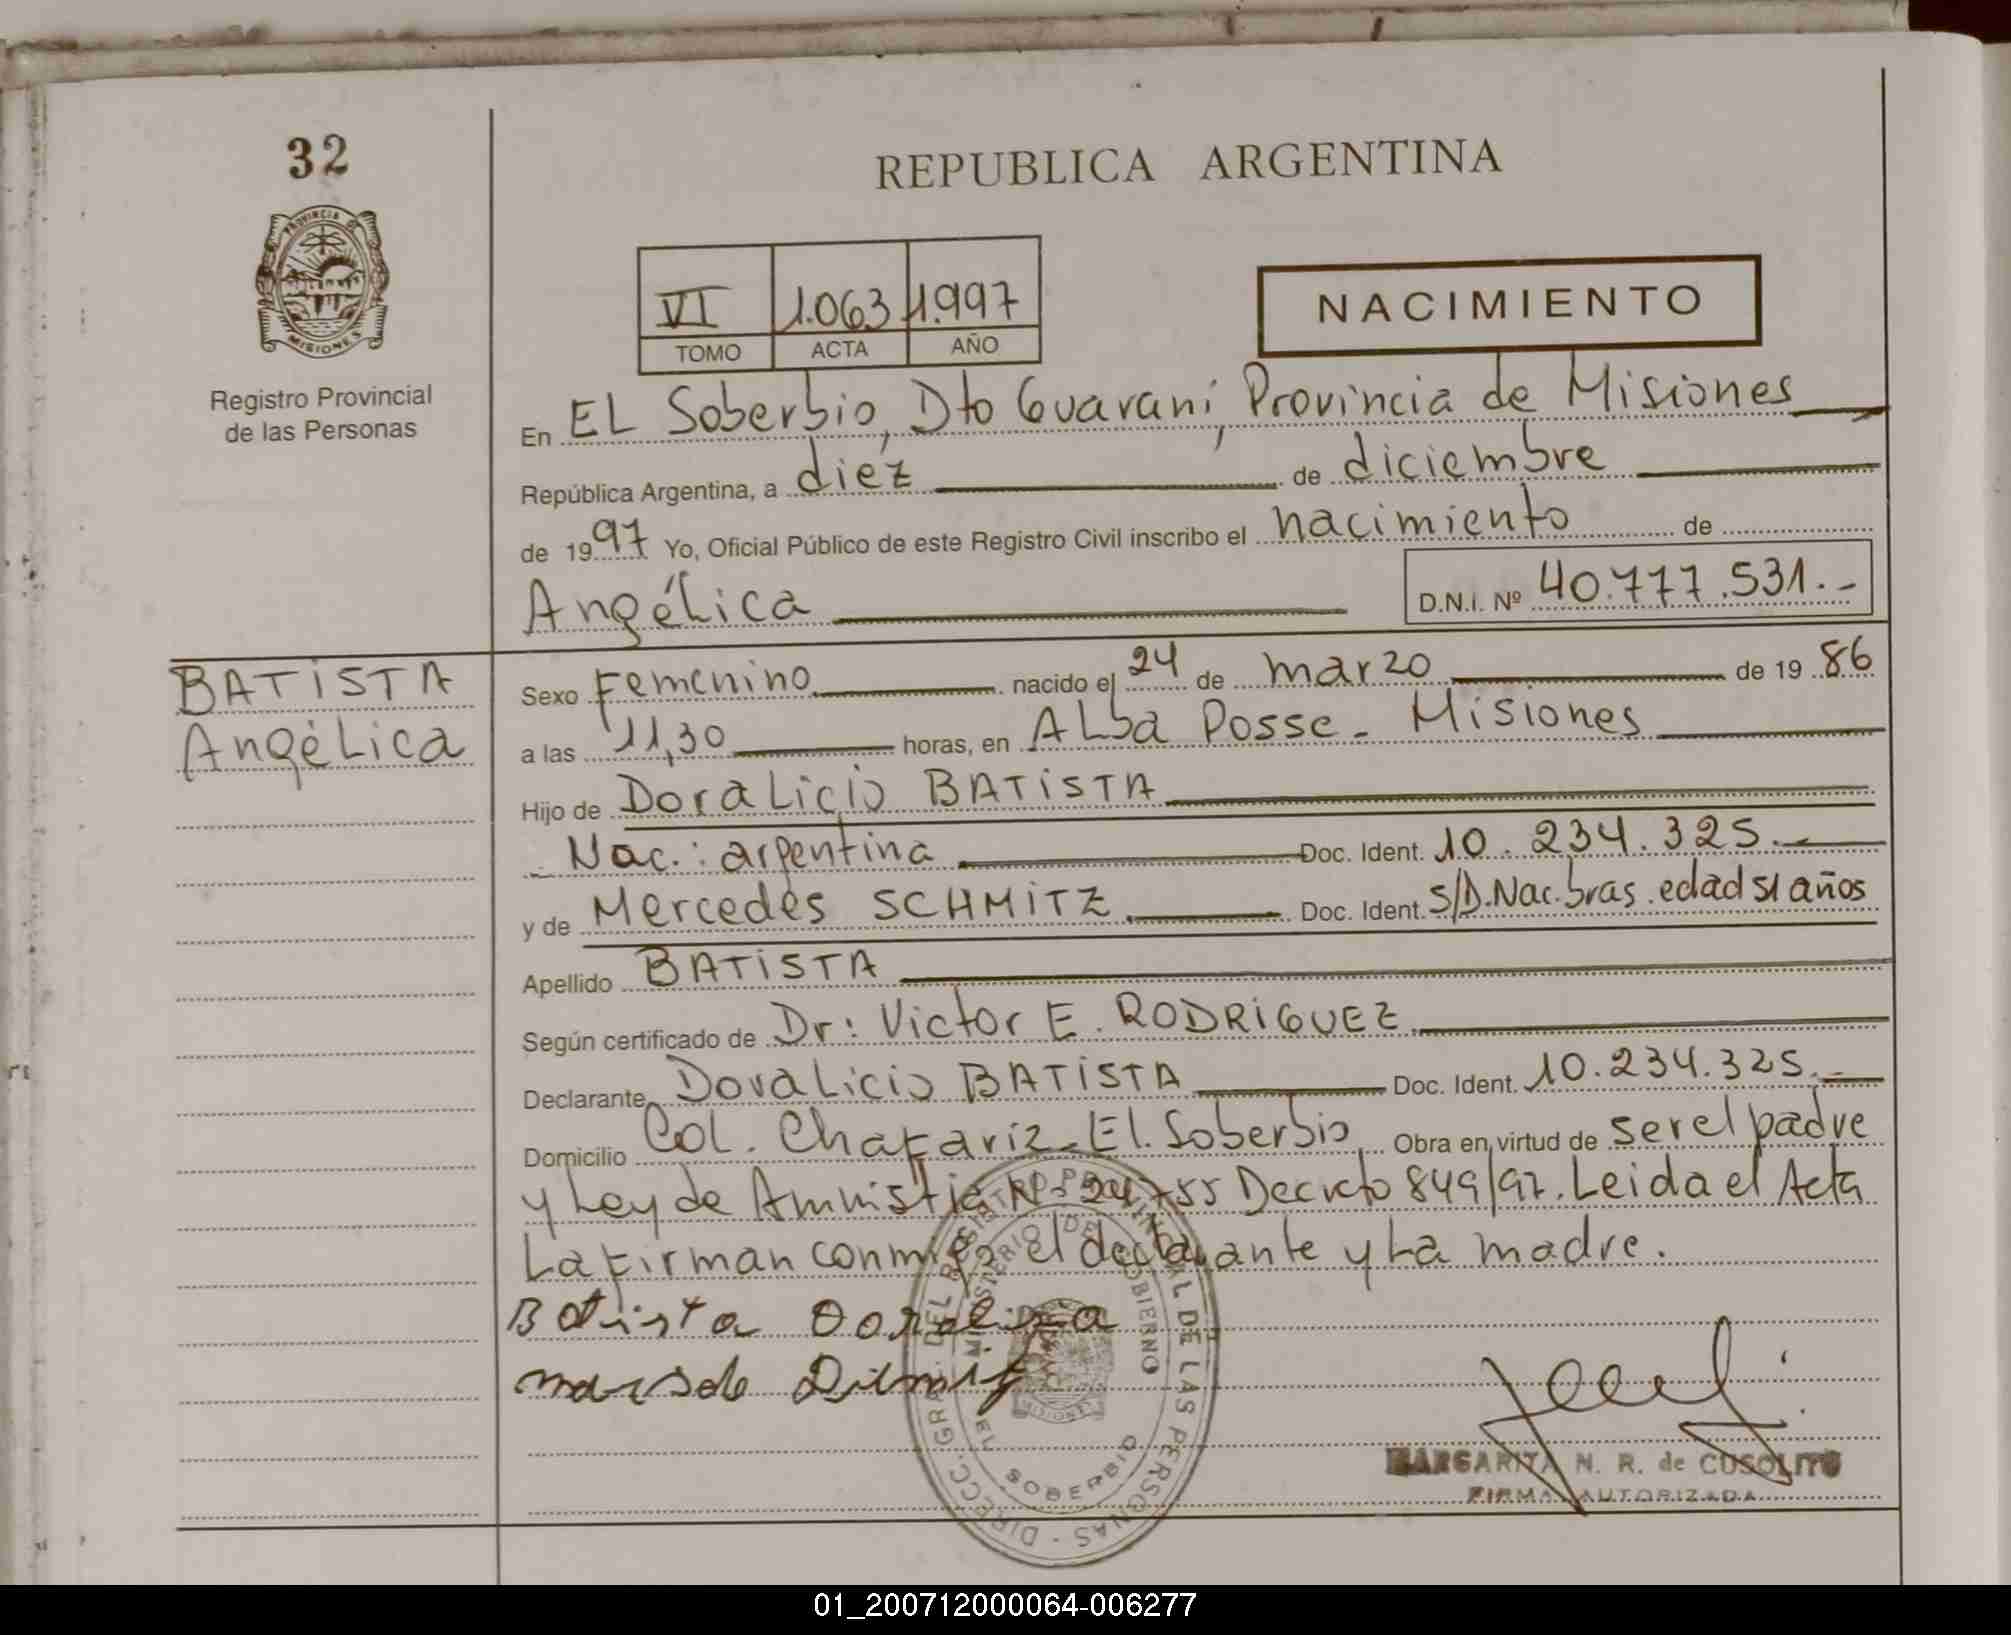 32
PROVINCIA DE
MISIONES
Registro Provincial
de las Personas
REPUBLICA ARGENTINA
VI 1.063 1.997
TOMO ACTA AÑO
NACIMIENTO
En EL Soberbio, Dto Guaraní, Provincia de Misiones
República Argentina, a diéz de diciembre
de 1997 Yo, Oficial Público de este Registro Civil inscribo el nacimiento de
Angélica D.N.I. Nº 40.777.531.-
BATISTA
Angélica
Sexo Femenino nacido el 24 de marzo de 1986
a las 11,30 horas, en ALba Posse - Misiones
Hijo de DoraLicio BATISTA
- Nac.: argentina Doc. Ident. 10.234.325.-
y de Mercedes SCHMITZ Doc. Ident. S/D. Nac. bras. edad 51 años
Apellido BATISTA
Según certificado de Dr: Victor E. RODRIGUEZ
Declarante DoraLicio BATISTA Doc. Ident. 10.234.325.-
Domicilio Col. Chafariz - El Soberbio Obra en virtud de ser el padre
y Ley de Amnistía Nº 24755 Decreto 849/97. Leida el Acta
La firman conmigo el declarante y La madre.
Batista
MARGARITA N. R. de CUSOLITO
FIRMA AUTORIZADA
DIRECC. GRAL. DEL REGISTRO PROVINCIAL DE LAS PERSONAS
MINISTERIO DE GOBIERNO
EL SOBERBIO
MISIONES
01_200712000064-006277